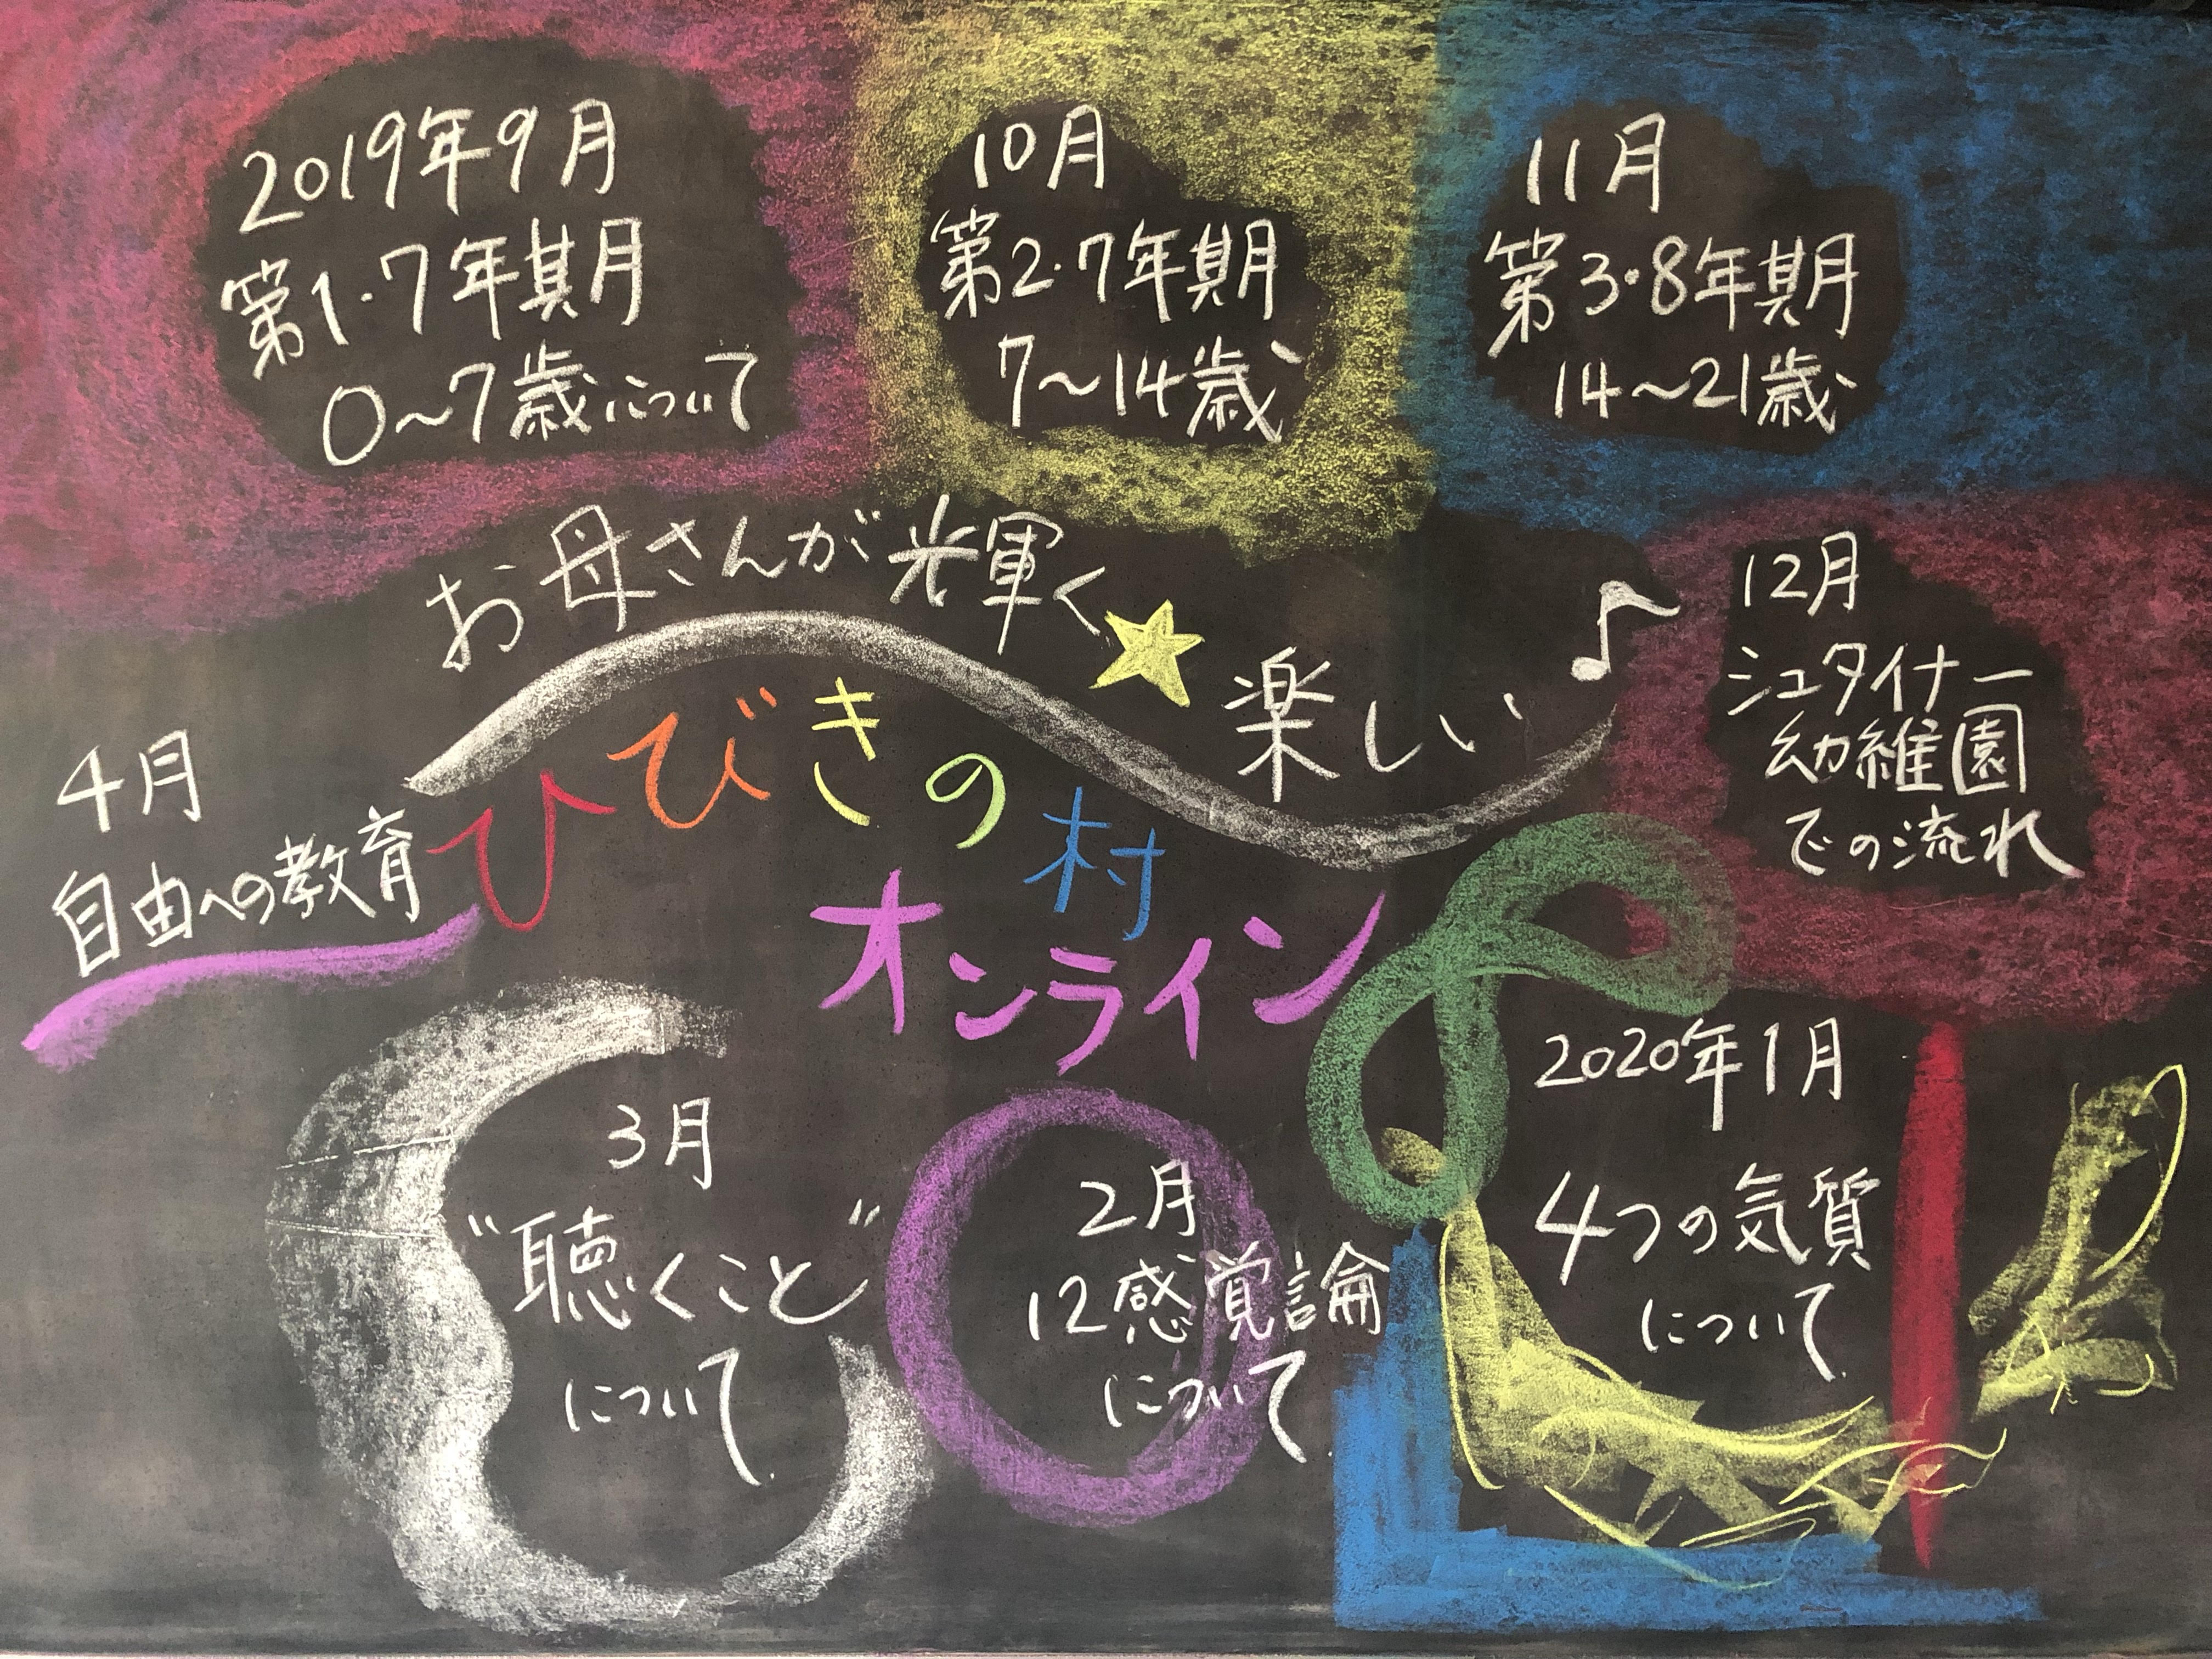 2019年9月
第1・7年期
0〜7歳について
10月
第2・7年期
7〜14歳
11月
第3・8年期
14〜21歳
お母さんが光輝く
楽しい
ひびきの村
オンライン
12月
シュタイナー
幼稚園
での流れ
2020年1月
4つの気質
について
2月
12感覚論
について
3月
"聴くこと"
について
4月
自由への教育